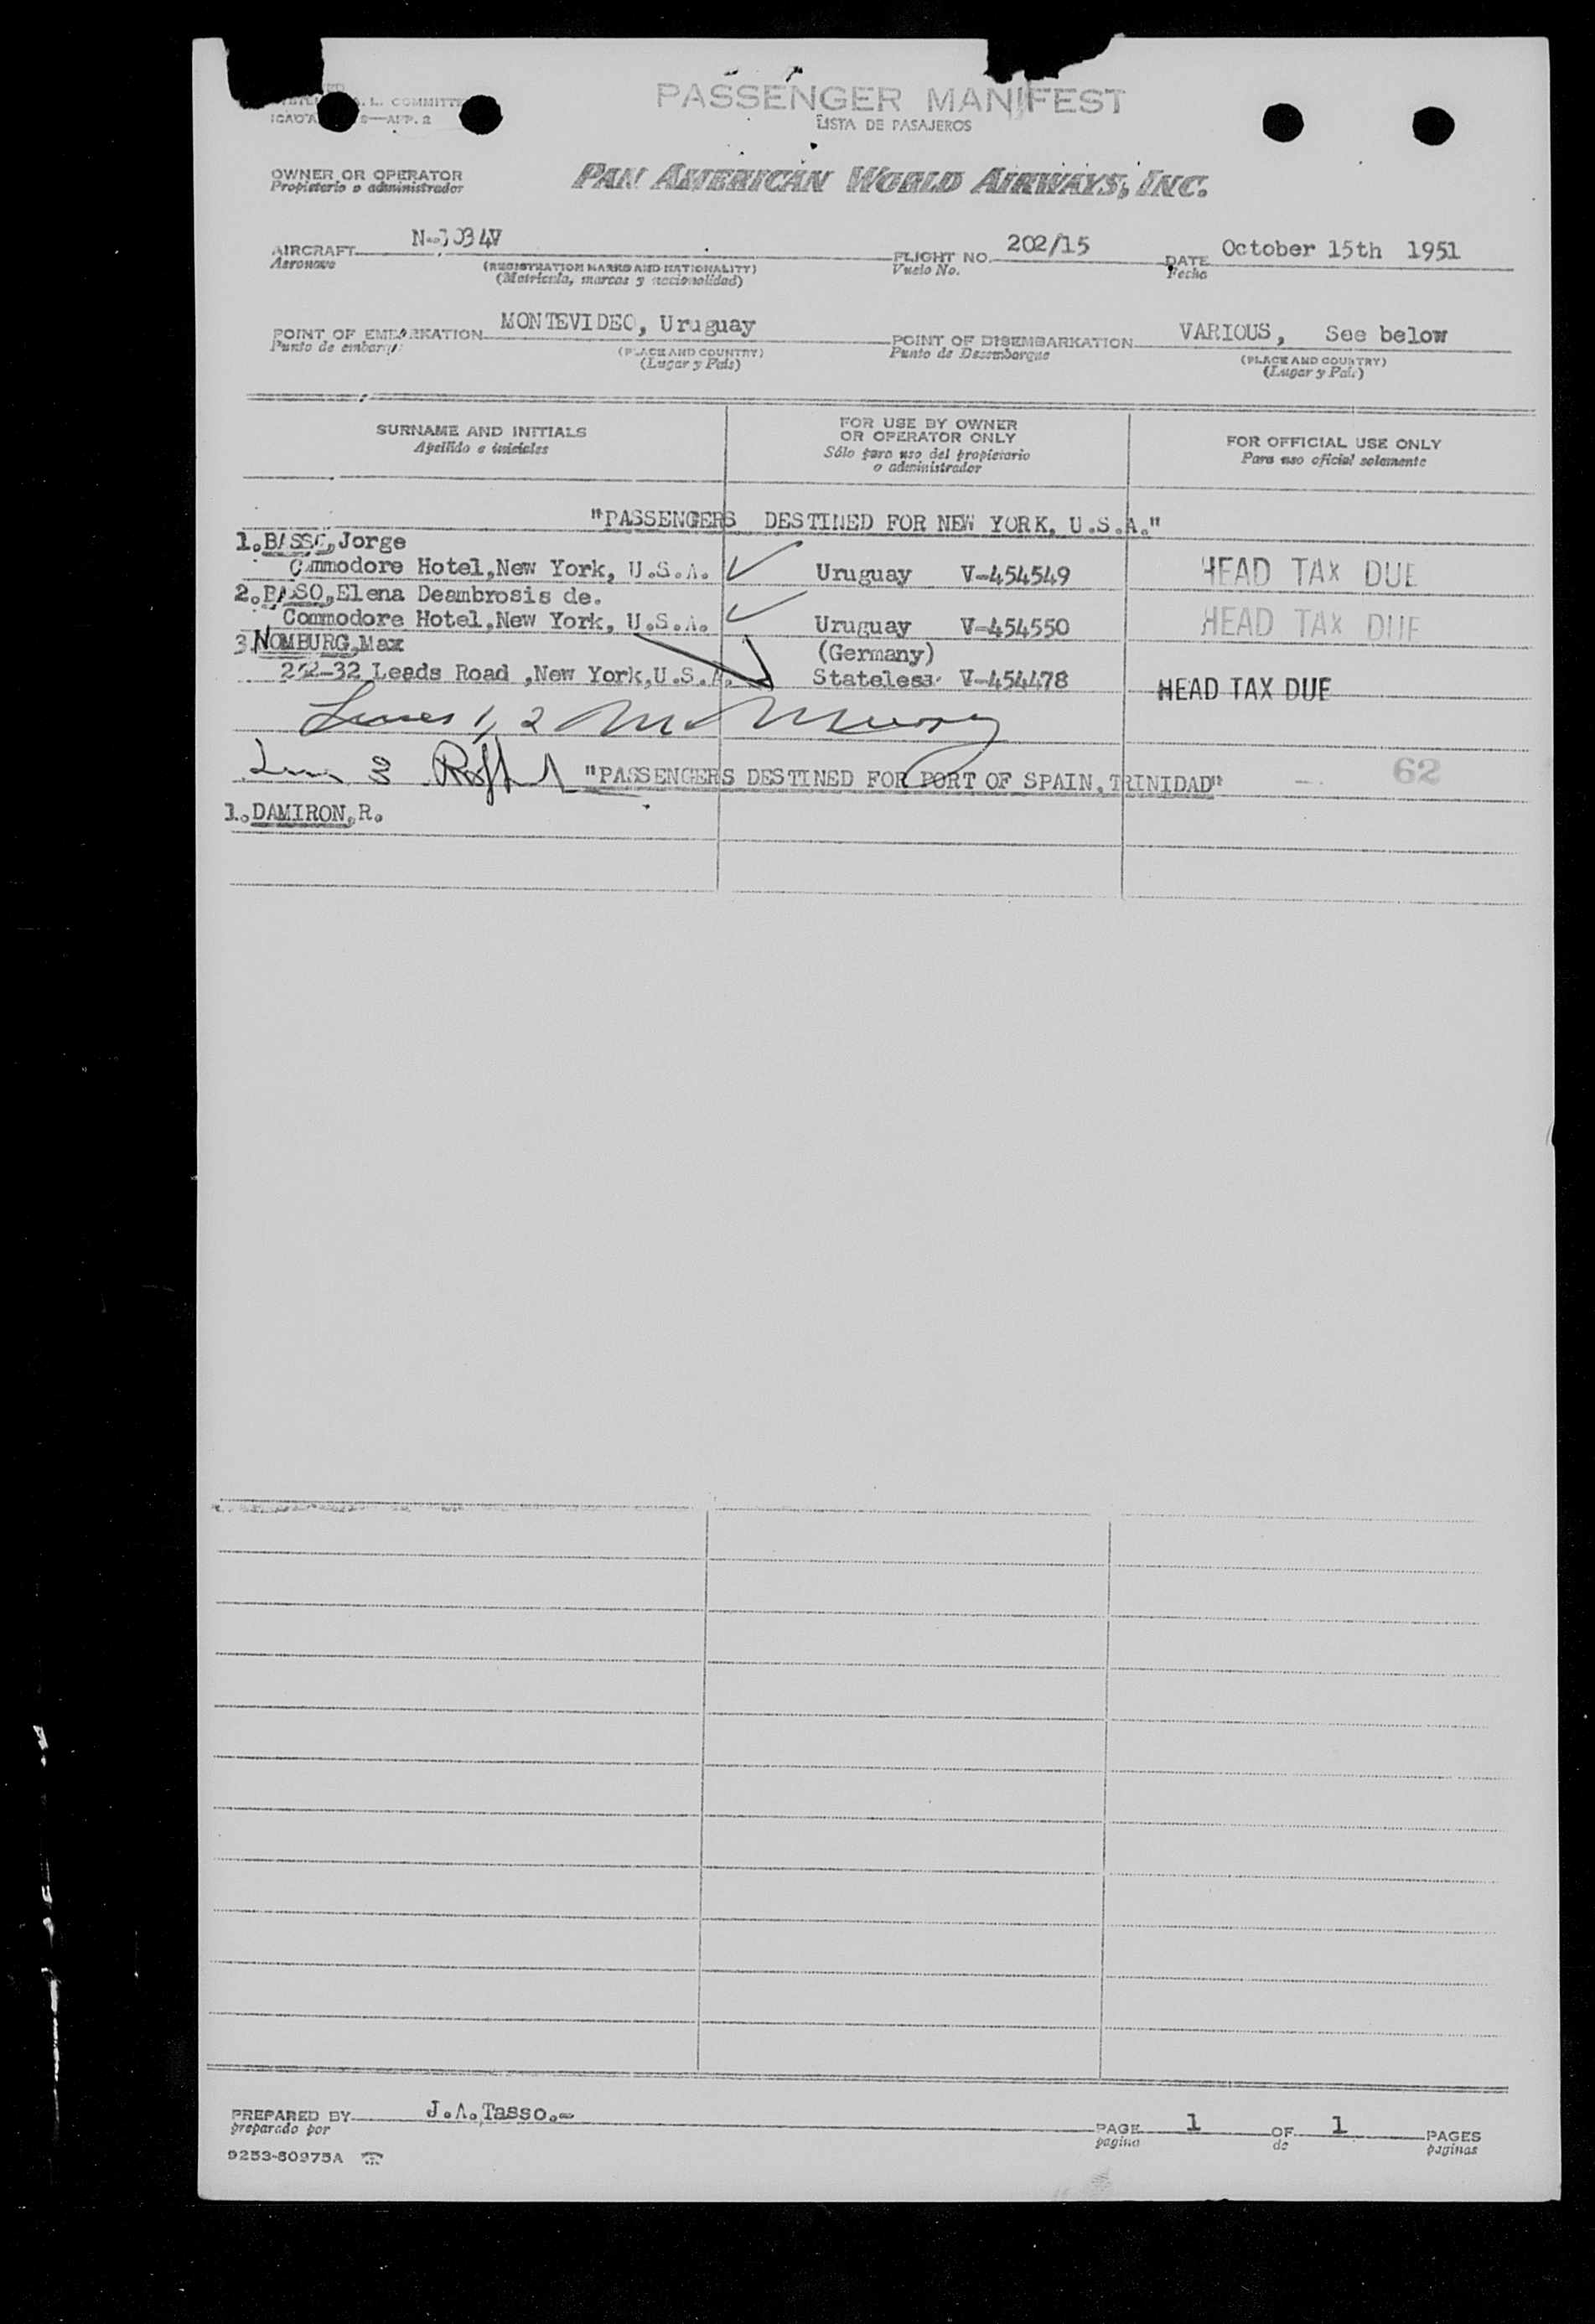 COMMITTE
PASSENGER MANIFEST
LISTA DE PASAJEROS
OWNER OR OPERATOR
Propietario o administrador
PAN AMERICAN WORLD AIRWAYS, INC.
AIRCRAFT
Aeronave
(REGISTRATION MARKS AND NATIONALITY)
(Matrícula, marcas y nacionalidad)
FLIGHT NO. 202/15
Vuelo No.
DATE October 15th 1951
Fecha
POINT OF EMBARKATION MONTEVIDEO, Uruguay
Punto de embarque
(PLACE AND COUNTRY)
(Lugar y País)
POINT OF DISEMBARKATION VARIOUS, See below
Punto de Desembarque
(PLACE AND COUNTRY)
(Lugar y País)
SURNAME AND INITIALS
Apellido e iniciales
FOR USE BY OWNER
OR OPERATOR ONLY
Sólo para uso del propietario
o administrador
FOR OFFICIAL USE ONLY
Para uso oficial solamente
"PASSENGERS DESTINED FOR NEW YORK, U.S.A."
1.BASSO,Jorge
Commodore Hotel,New York, U.S.A. Uruguay V-454549 HEAD TAX DUE
2.BASSO,Elena Deambrosis de.
Commodore Hotel,New York, U.S.A. Uruguay V-454550 HEAD TAX DUE
3.NOMBURG,Max (Germany)
Leads Road ,New York,U.S.A. Stateless V-454478 HEAD TAX DUE
Lines 1, 2
3 "PASSENGERS DESTINED FOR PORT OF SPAIN,TRINIDAD" 62
1.DAMIRON,R.
PREPARED BY J.A.Tasso.-
preparado por
PAGE 1 OF 1 PAGES
pagina de paginas
9253-80975A